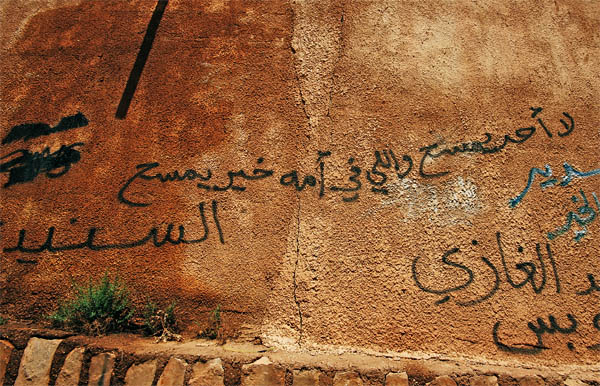 لا أحد يمسح واللي في أمه خير يمسح
السنين
الغازي
وبس